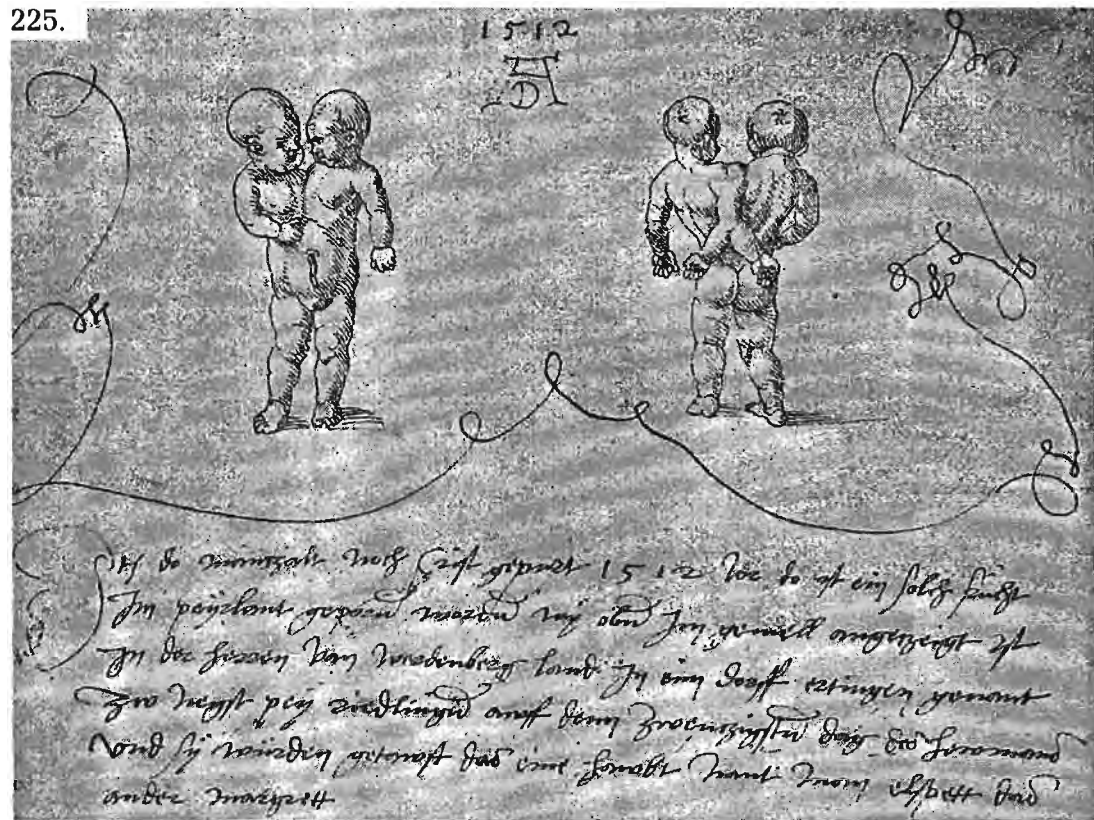 225.
1512
AD
do manczalt noch Crist gepurt 1512 Jor do ist ein solch frucht
Im peyrlant geporn worden wy obn Im gemell angetzeigt ist
In der herren von werdenberg land In eim dorff ertingen genant
Zw negst pey riedlingen awff denn zwenczigstn dag des hewmans
vnd sy wurden getawft das eine hawbt nant man elspett das
ander margrett